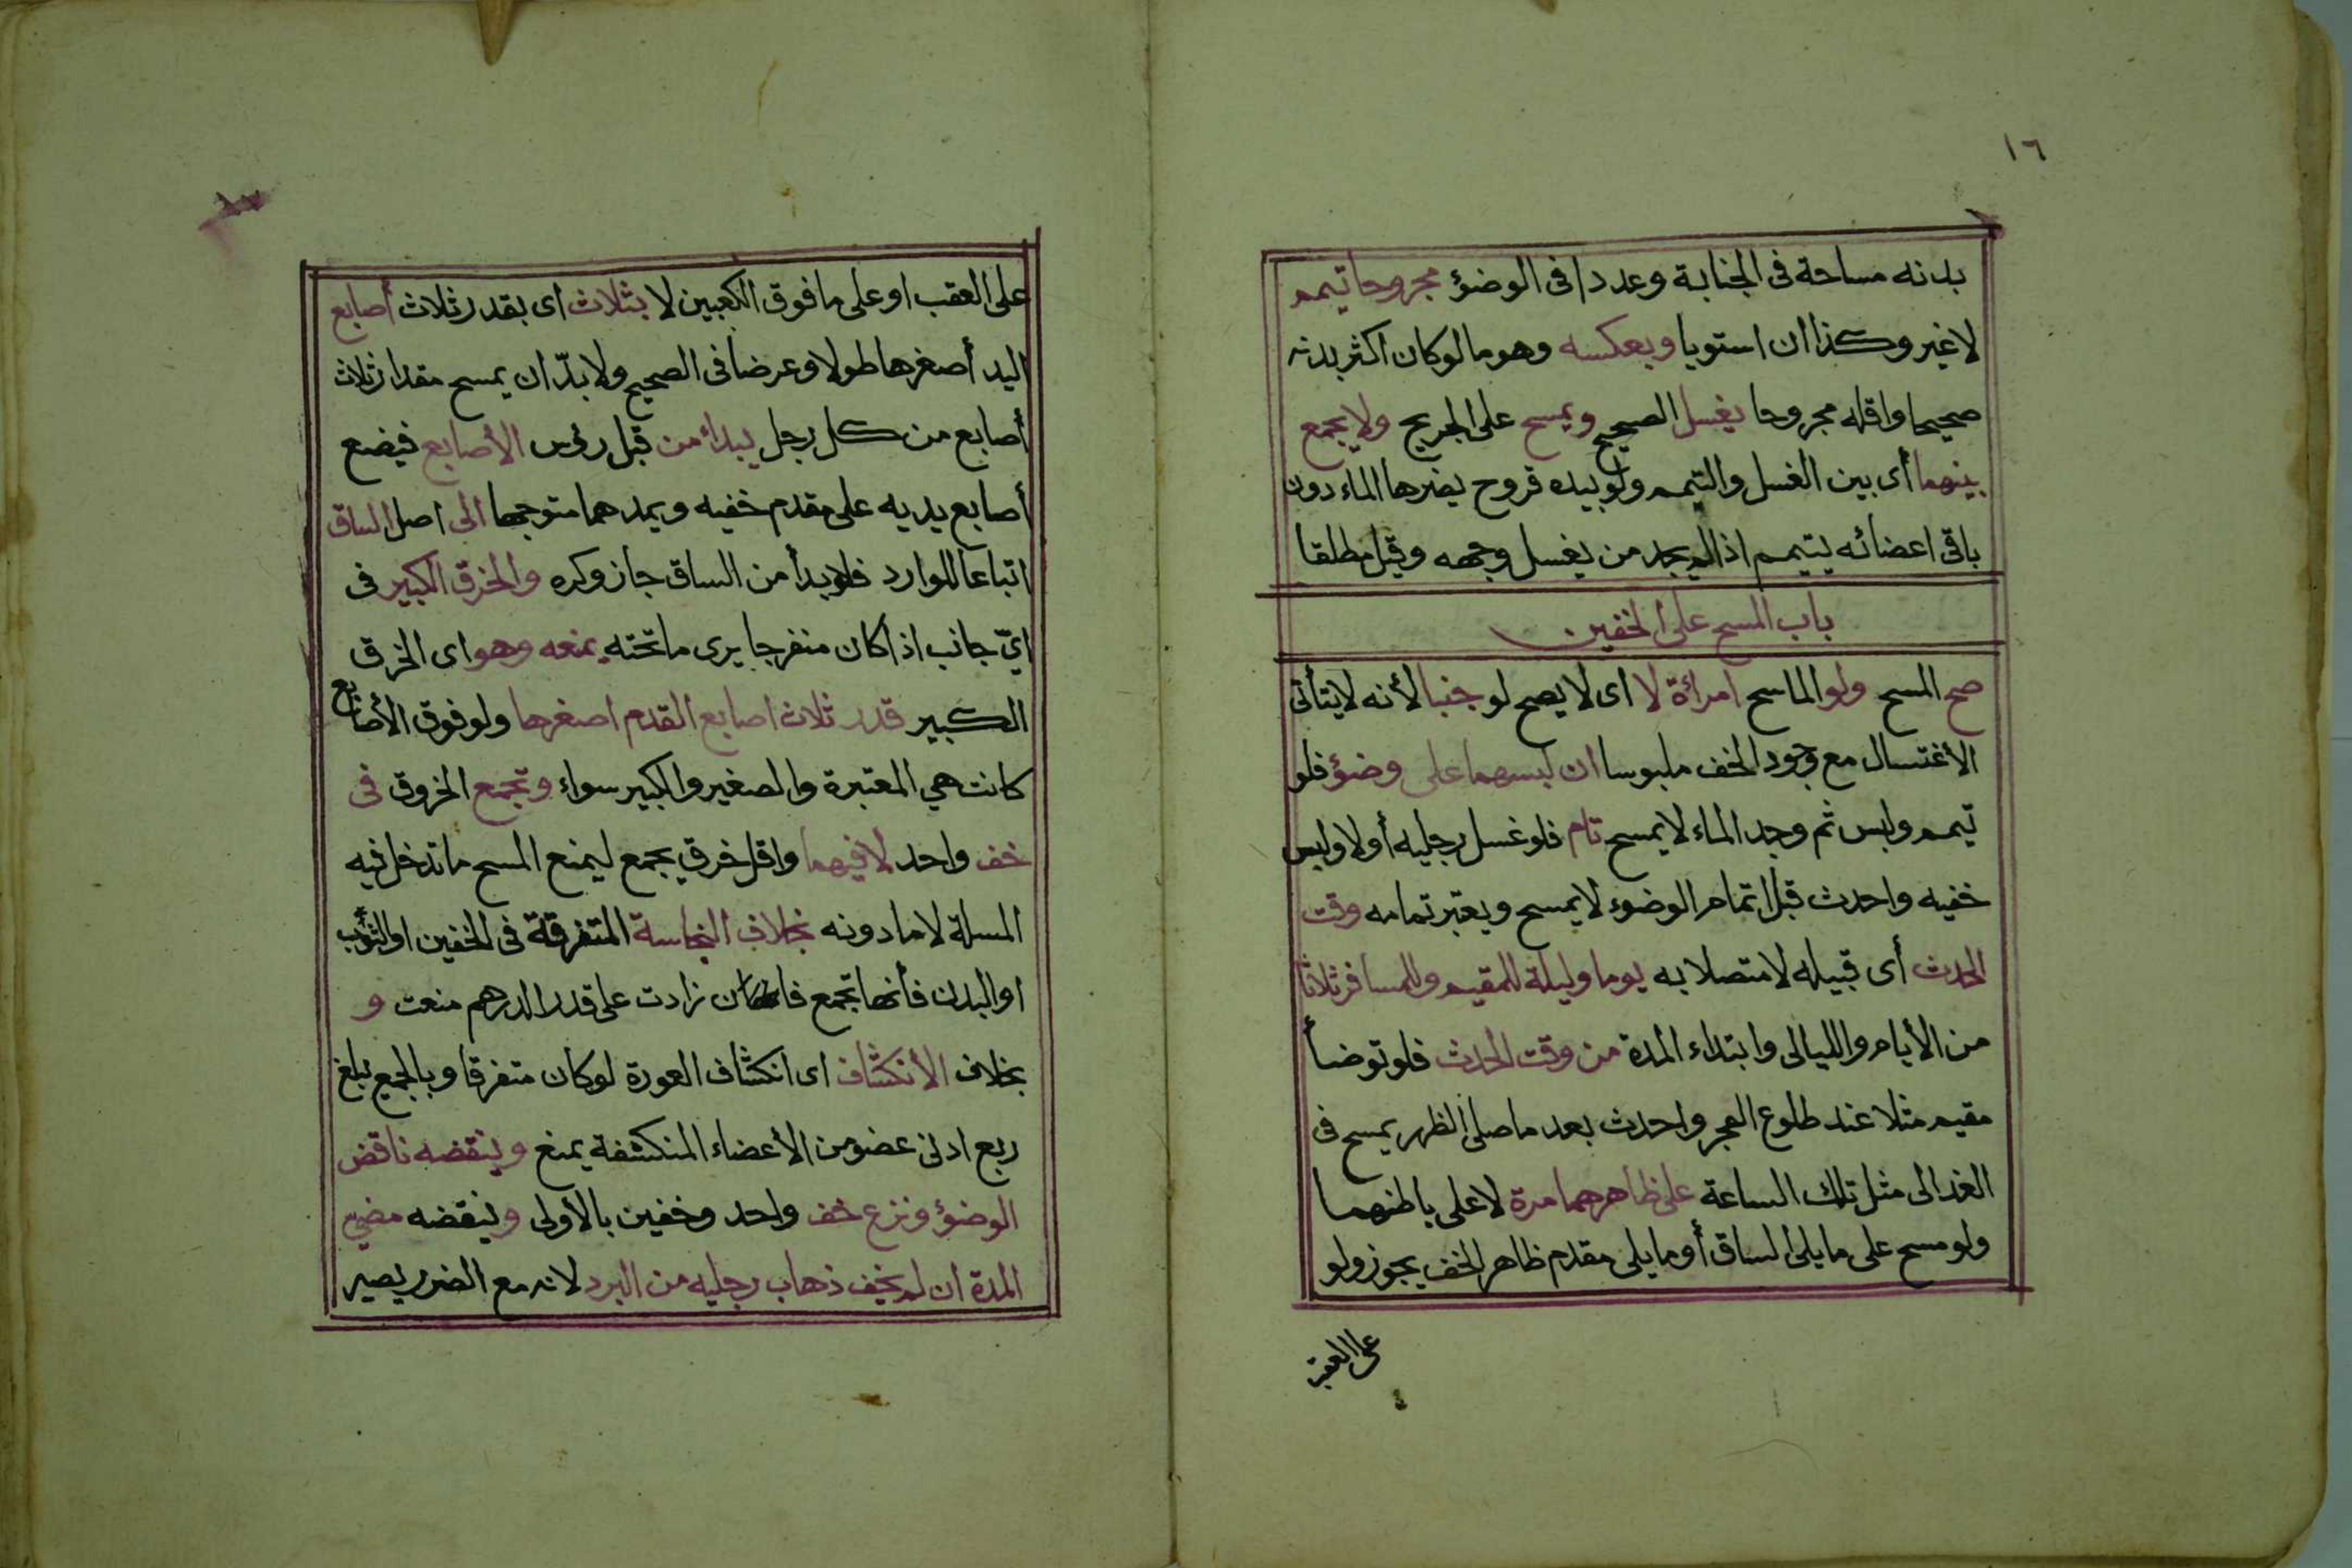 ١٦
بدنه مساحة فى الجنابة وعددا فى الوضؤ مجروحا تيمم
لا غير وكذا ان استويا وبعكسه وهو ما لو كان اكثر بدنه
صحيحا واقله مجروحا يغسل الصحيح ويمسح على الجريح ولا يجمع
بينهما أى بين الغسل والتيمم ولو بيده قروح يضرها الماء دون
باقى اعضائه يتيمم اذا لم يجد من يغسل وجهه وقيل مطلقا
باب المسح على الخفين
صح المسح ولو الماسح امرائة لا اى لا يصح لو جنبا لأنه لا يتأتى
الأغتسال مع وجود الخف ملبوسا ان لبسهما على وضؤ فلو
تيمم ولبس ثم وجد الماء لا يمسح تام فلو غسل رجليه أولا ولبس
خفيه واحدث قبل اتمام الوضوء لا يمسح ويعتبر تمامه وقت
الحدث أى قبيله لا متصلا به يوما وليلة للمقيم وللمسافر ثلاثا
من الأيام والليالى وابتداء المدة من وقت الحدث فلو توضأ
مقيم مثلا عند طلوع الفجر واحدث بعد ما صلى الظهر يمسح فى
الغد الى مثل تلك الساعة على ظاهرهما مرة لا على باطنهما
ولو مسح على ما يلى الساق أو ما يلى مقدم ظاهر الخف يجوز ولو
على العقب
على العقب او على ما فوق الكعبين لا بثلاث اى بقدر ثلاث أصابع
اليد أصغرها طولا وعرضا فى الصحيح ولا بدّ ان يمسح مقدار ثلاث
أصابع من كل رجل يبداء من قبل رؤس الأصابع فيضع
أصابع يديه على مقدم خفيه ويمدهما متوجها الى اصل الساق
اتباعا للوارد فلو بدأ من الساق جاز وكره والخرق الكبير فى
ايّ جانب اذا كان منفرجا يرى ما تحته يمنعه وهو اى الخرق
الكبير قدر ثلاث اصابع القدم اصغرها ولو فوق الأصابع
كانت هي المعتبرة والصغير والكبير سواء وتجمع الخروق فى
خف واحد لا فيهما واقل خرق يجمع ليمنع المسح ما تدخل فيه
المسلة لا ما دونه بخلاف النجاسة المتفرقة فى الخفين او الثوب
او البدن فأنها تجمع فان زادت على قدر الدرهم منعت و
بخلاف الأنكشاف اى انكشاف العورة لو كان متفرقا وبالجمع يبلغ
ربع ادنى عضو من الأعضاء المنكشفة يمنع وينقضه ناقض
الوضؤ ونزع خف واحد وخفين بالأولى وينقضه مضي
المدة ان لم يخف ذهاب رجليه من البرد لانه مع الضرر يصير